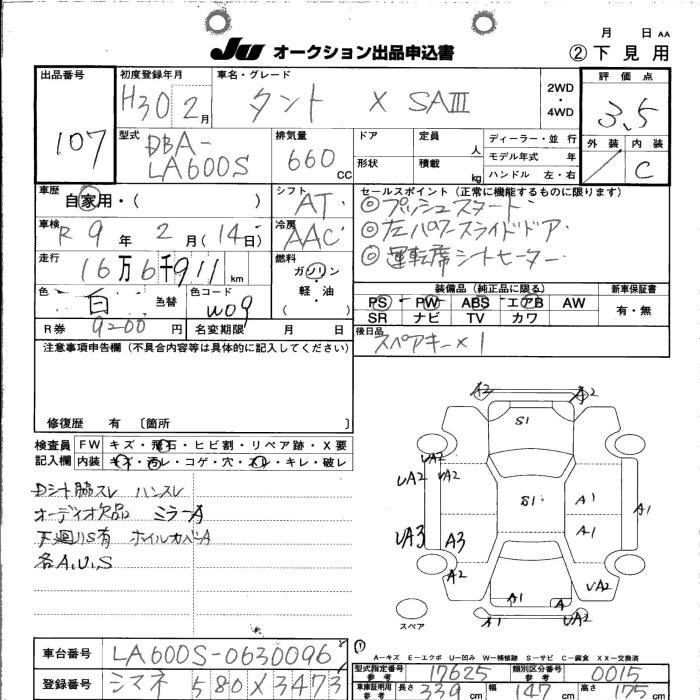 月 日 AA
JU オークション出品申込書 ②下見用
出品番号 初度登録年月 車名・グレード 2WD・4WD 評価点
107 H30 2月 タント X SAⅢ 3.5
型式 DBA-LA600S 排気量 660 CC
ドア 定員 人 ディーラー・並行
形状 積載 kg モデル年式 年
ハンドル 左・右
外装 内装
C
車歴 自家用・( ) シフト AT
セールスポイント (正常に機能するものに限ります)
◎プッシュスタート
◎左パワースライドドア
◎運転席シートヒーター
車検 R9年 2月(14日) 冷房 AAC
走行 16万6千911km 燃料 ガソリン 軽・油 ( )
色 白 色替 カラーコード W09
装備品 (純正品に限る) 新車保証書
PS PW ABS エアB AW 有・無
SR ナビ TV カワ
R券 9200円 名変期限 月 日
後日品 スペアキー×1
注意事項申告欄 (不具合内容等は具体的に記入してください)
修復歴 有 〔箇所 〕
検査員記入欄 FW キズ・飛石・ヒビ割・リペア跡・X要
内装 キズ・汚レ・コゲ・穴・スレ・キレ・破レ
Dシート脇スレ ハンスレ
オーディオ欠品 ミラーA
下廻りS有 ホイルカバーA
各A.U.S
A2 A2
S1
UA2
UA2 UA2
S1 A1 A1
A1
UA3 A3
A2 UA2
A1 A
A2 UA2
スペア
A—キズ E—エクボ U—凹み W—補修跡 S—サビ C—腐食 XX—交換済
車台番号 LA600S-0630096
登録番号 シマネ 580 X 3473
型式指定番号 参考 17625 類別区分番号 参考 0015
車庫証明用 参考 長さ 339cm 幅 147cm 高さ 175cm